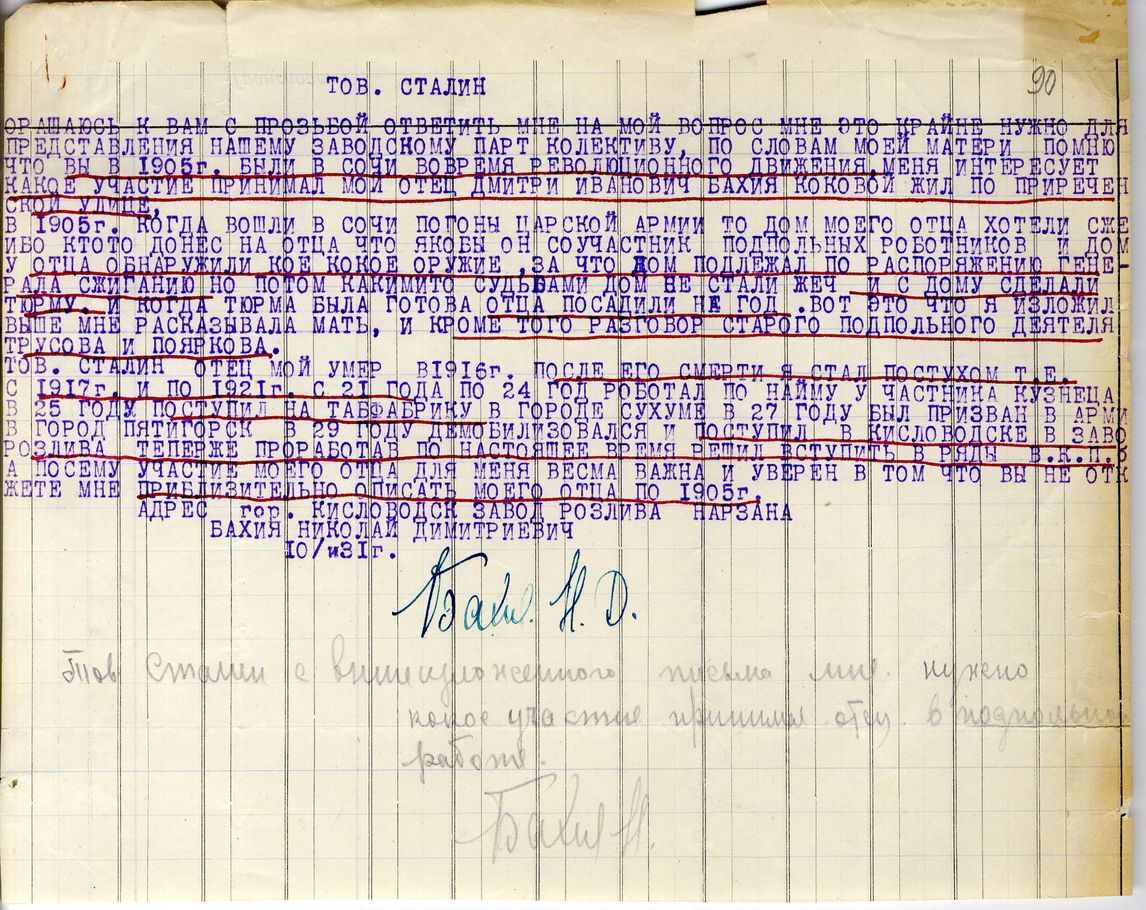 90
ТОВ. СТАЛИН
ОРАЩАЮСЬ К ВАМ С ПРОЗЬБОЙ ОТВЕТИТЬ МНЕ НА МОЙ ВОПРОС МНЕ ЭТО КРАЙНЕ НУЖНО ДЛЯ
ПРЕДСТАВЛЕНИЯ НАШЕМУ ЗАВОДСКОМУ ПАРТ КОЛЕКТИВУ, ПО СЛОВАМ МОЕЙ МАТЕРИ ПОМНЮ
ЧТО ВЫ В 1905г. БЫЛИ В СОЧИ ВОВРЕМЯ РЕВОЛЮЦИОННОГО ДВИЖЕНИЯ, МЕНЯ ИНТЕРЕСУЕТ
КАКОЕ УЧАСТИЕ ПРИНИМАЛ МОЙ ОТЕЦ ДМИТРИ ИВАНОВИЧ БАХИЯ КОКОВОЙ ЖИЛ ПО ПРИРЕЧЕН
СКОЙ УЛИЦЕ,
В 1905г. КОГДА ВОШЛИ В СОЧИ ПОГОНЫ ЦАРСКОЙ АРМИИ ТО ДОМ МОЕГО ОТЦА ХОТЕЛИ СЖЕ
ИБО КТОТО ДОНЕС НА ОТЦА ЧТО ЯКОБЫ ОН СОУЧАСТНИК ПОДПОЛЬНЫХ РОБОТНИКОВ И ДОМ
У ОТЦА ОБНАРУЖИЛИ КОЕ КОКОЕ ОРУЖИЕ ,ЗА ЧТО ДОМ ПОДЛЕЖАЛ ПО РАСПОРЯЖЕНИЮ ГЕНЕ-
РАЛА СЖИГАНИЮ НО ПОТОМ КАКИМИТО СУДЬБАМИ ДОМ НЕ СТАЛИ ЖЕЧ И С ДОМУ СДЕЛАЛИ
ТЮРМУ. И КОГДА ТЮРМА БЫЛА ГОТОВА ОТЦА ПОСАДИЛИ НА ГОД .ВОТ ЭТО ЧТО Я ИЗЛОЖИЛ
ВЫШЕ МНЕ РАСКАЗЫВАЛА МАТЬ, И КРОМЕ ТОГО РАЗГОВОР СТАРОГО ПОДПОЛЬНОГО ДЕЯТЕЛЯ
ТРУСОВА И ПОЯРКОВА.
ТОВ. СТАЛИН ОТЕЦ МОЙ УМЕР В1916г. ПОСЛЕ ЕГО СМЕРТИ Я СТАЛ ПОСТУХОМ Т.Е.
С 1917г. И ПО 1921г. С 21 ГОДА ПО 24 ГОД РОБОТАЛ ПО НАЙМУ У ЧАСТНИКА КУЗНЕЦА.
В 25 ГОДУ ПОСТУПИЛ НА ТАБФАБРИКУ В ГОРОДЕ СУХУМЕ В 27 ГОДУ БЫЛ ПРИЗВАН В АРМИ
В ГОРОД ПЯТИГОРСК В 29 ГОДУ ДЕМОБИЛИЗОВАЛСЯ И ПОСТУПИЛ В КИСЛОВОДСКЕ В ЗАВО
РОЗЛИВА ТЕПЕРЖЕ ПРОРАБОТАВ ПО НАСТОЯЩЕЕ ВРЕМЯ РЕШИЛ ВСТУПИТЬ В РЯДЫ В.К.П.б
А ПОСЕМУ УЧАСТИЕ МОЕГО ОТЦА ДЛЯ МЕНЯ ВЕСМА ВАЖНА И УВЕРЕН В ТОМ ЧТО ВЫ НЕ ОТК
ЖЕТЕ МНЕ ПРИБЛИЗИТЕЛЬНО ОПИСАТЬ МОЕГО ОТЦА ПО 1905г.
АДРЕС гор. КИСЛОВОДСК ЗАВОД РОЗЛИВА НАРЗАНА
БАХИЯ НИКОЛАЙ ДИМИТРИЕВИЧ
10/и31г.
Бахия. Н. D.
Тов Сталин с вышеизложенного письма мне нужно
какое участие принимал отец в подпольной
работе.
Бахия Н.